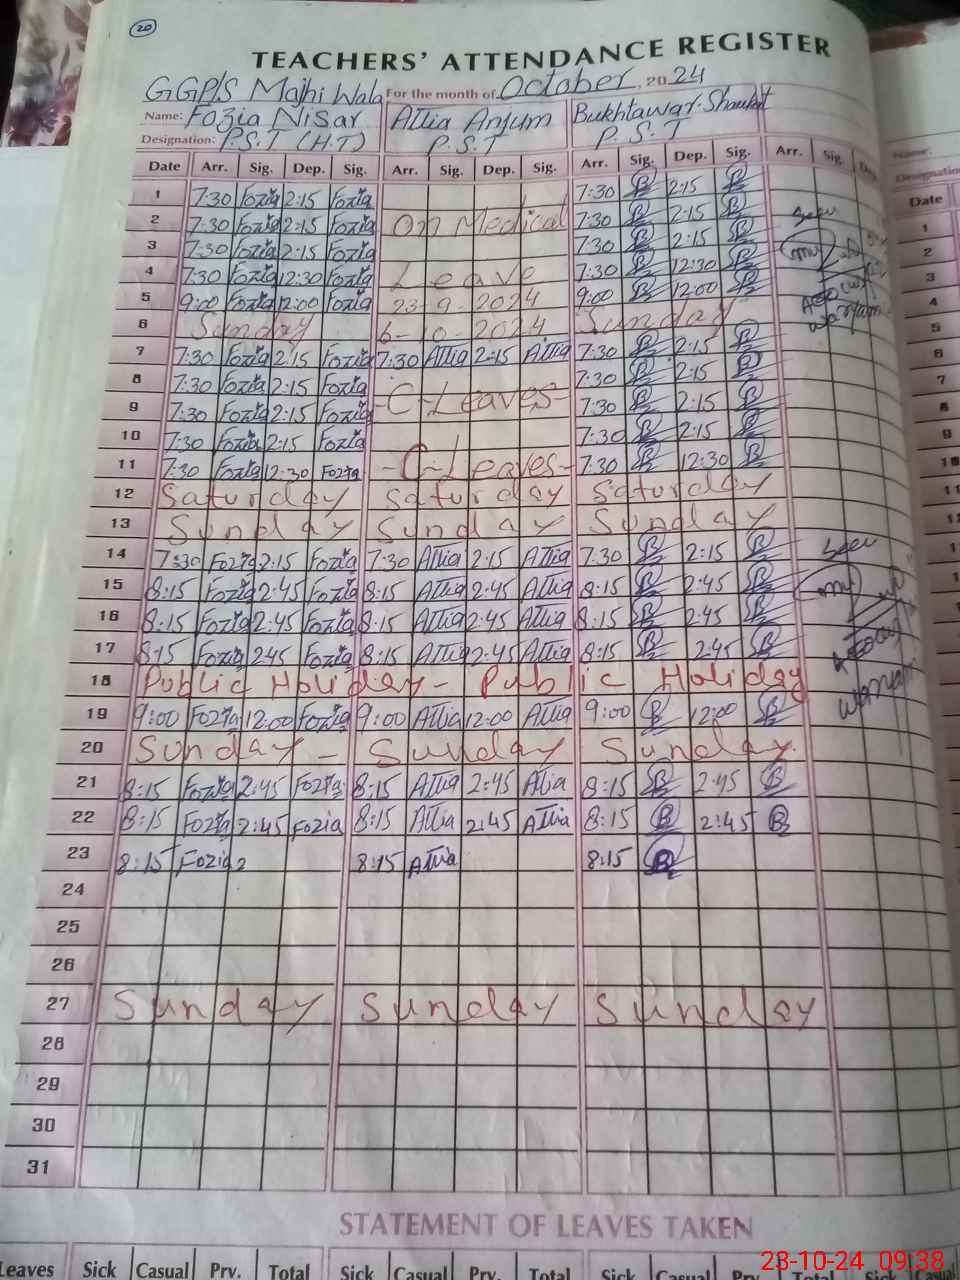 20
TEACHERS' ATTENDANCE REGISTER
GGP/S Majhi Wala For the month of October, 2024
Name: Fozia Nisar Attia Anjum Bukhtawar Shaukat
Designation: P.S.T (H.T) P.S.T P.S.T
Date Arr. Sig. Dep. Sig. Arr. Sig. Dep. Sig. Arr. Sig. Dep. Sig. Arr. Sig. Dep.
1 7:30 Fozia 2:15 Fozia 7:30 B 2:15 B
2 7:30 Fozia 2:15 Fozia On Medical 7:30 B 2:15 B
3 7:30 Fozia 2:15 Fozia 7:30 B 2:15 B
4 7:30 Fozia 12:30 Fozia Leave 7:30 B 12:30 B
5 9:00 Fozia 12:00 Fozia 23-9-2024 9:00 B 12:00 B
6 Sunday 6-10-2024 Sunday
7 7:30 Fozia 2:15 Fozia 7:30 Attia 2:15 Attia 7:30 B 2:15 B
8 7:30 Fozia 2:15 Fozia 7:30 B 2:15 B
9 7:30 Fozia 2:15 Fozia -C-Leaves- 7:30 B 2:15 B
10 7:30 Fozia 2:15 Fozia 7:30 B 2:15 B
11 7:30 Fozia 12:30 Fozia -C-Leaves- 7:30 B 12:30 B
12 Saturday Saturday Saturday
13 Sunday Sunday Sunday
14 7:30 Fozia 2:15 Fozia 7:30 Attia 2:15 Attia 7:30 B 2:15 B
15 8:15 Fozia 2:45 Fozia 8:15 Attia 2:45 Attia 8:15 B 2:45 B
16 8:15 Fozia 2:45 Fozia 8:15 Attia 2:45 Attia 8:15 B 2:45 B
17 8:15 Fozia 2:45 Fozia 8:15 Attia 2:45 Attia 8:15 B 2:45 B
18 Public Holiday - Public Holiday
19 9:00 Fozia 12:00 Fozia 9:00 Attia 12:00 Attia 9:00 B 12:00 B
20 Sunday - Sunday Sunday.
21 8:15 Fozia 2:45 Fozia 8:15 Attia 2:45 Attia 8:15 B 2:45 B
22 8:15 Fozia 2:45 Fozia 8:15 Attia 2:45 Attia 8:15 B 2:45 B
23 8:15 Fozia 2 8:15 Attia 8:15 B
24
25
26
27 Sunday Sunday Sunday
28
29
30
31
STATEMENT OF LEAVES TAKEN
Leaves Sick Casual Prv. Total Sick Casual Prv. Total Sick Casual Prv.
23-10-24 09:38
Name:
Designation
Date
1
2
3
4
5
6
7
8
9
10
11